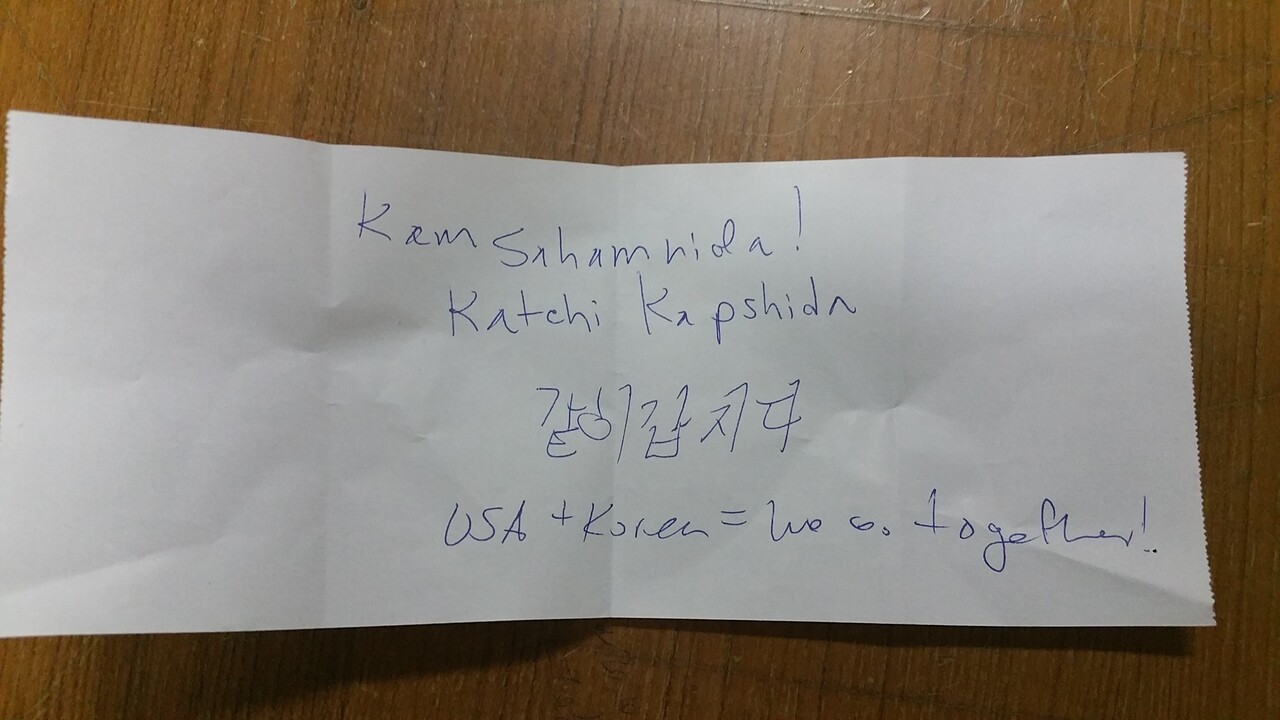 Kam Sahamnida!
Katchi Kapshida
같이 갑지다
USA + Korea = We Go together!